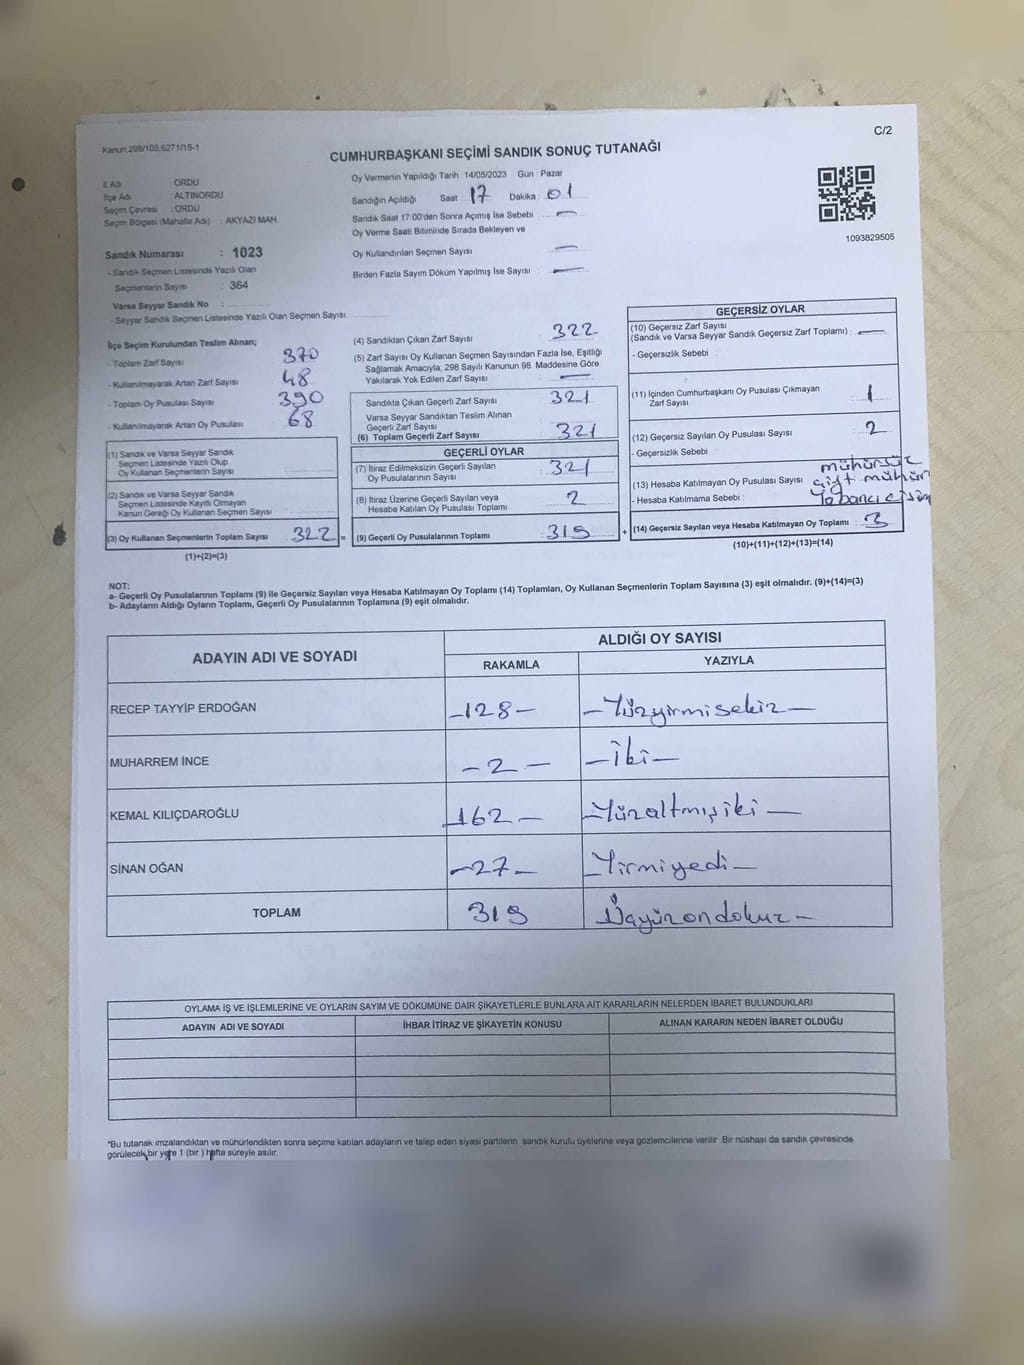 C/2
Kanun 298/105 6271/18-1
CUMHURBAŞKANI SEÇİMİ SANDIK SONUÇ TUTANAĞI
İl Adı : ORDU
İlçe Adı : ALTINORDU
Seçim Çevresi : ORDU
Seçim Bölgesi (Mahalle Adı) : AKYAZI MAH.
Sandık Numarası : 1023
- Sandık Seçmen Listesinde Yazılı Olan
Seçmenlerin Sayısı : 364
Varsa Seyyar Sandık No :
- Seyyar Sandık Seçmen Listesinde Yazılı Olan Seçmen Sayısı:
Oy Vermenin Yapıldığı Tarih : 14/05/2023 Gün : Pazar
Sandığın Açıldığı Saat : 17 Dakika : 01
Sandık Saat 17.00'den Sonra Açımış İse Sebebi : —
Oy Verme Saati Bitiminde Sırada Bekleyen ve
Oy Kullandırılan Seçmen Sayısı : —
Birden Fazla Sayım Döküm Yapılmış İse Sayısı : —
1093829505
İlçe Seçim Kurulundan Teslim Alınan;
- Toplam Zarf Sayısı : 370
- Kullanılmayarak Artan Zarf Sayısı : 48
- Toplam Oy Pusulası Sayısı : 390
- Kullanılmayarak Artan Oy Pusulası : 68
(1) Sandık ve Varsa Seyyar Sandık
Seçmen Listesinde Yazılı Olup
Oy Kullanan Seçmenlerin Sayısı :
(2) Sandık ve Varsa Seyyar Sandık
Seçmen Listesinde Kayıtlı Olmayan
Kanun Gereği Oy Kullanan Seçmen Sayısı :
(3) Oy Kullanan Seçmenlerin Toplam Sayısı : 322 =
(1)+(2)=(3)
(4) Sandıktan Çıkan Zarf Sayısı : 322
(5) Zarf Sayısı Oy Kullanan Seçmen Sayısından Fazla İse, Eşitliği
Sağlamak Amacıyla, 298 Sayılı Kanunun 98. Maddesine Göre
Yakılarak Yok Edilen Zarf Sayısı : —
Sandıkta Çıkan Geçerli Zarf Sayısı : 321
Varsa Seyyar Sandıktan Teslim Alınan
Geçerli Zarf Sayısı :
(6) Toplam Geçerli Zarf Sayısı : 321
GEÇERLİ OYLAR
(7) İtiraz Edilmeksizin Geçerli Sayılan
Oy Pusulalarının Sayısı : 321
(8) İtiraz Üzerine Geçerli Sayılan veya
Hesaba Katılan Oy Pusulası Toplamı : 2
(9) Geçerli Oy Pusulalarının Toplamı : 319 +
GEÇERSİZ OYLAR
(10) Geçersiz Zarf Sayısı
(Sandık ve Varsa Seyyar Sandık Geçersiz Zarf Toplamı) : —
- Geçersizlik Sebebi :
(11) İçinden Cumhurbaşkanı Oy Pusulası Çıkmayan
Zarf Sayısı : 1
(12) Geçersiz Sayılan Oy Pusulası Sayısı : 2
- Geçersizlik Sebebi :
mühürsüz
(13) Hesaba Katılmayan Oy Pusulası Sayısı : çift mühür
- Hesaba Katılmama Sebebi : Yabancı cisim
(14) Geçersiz Sayılan veya Hesaba Katılmayan Oy Toplamı : 3
(10)+(11)+(12)+(13)=(14)
NOT:
a- Geçerli Oy Pusulalarının Toplamı (9) ile Geçersiz Sayılan veya Hesaba Katılmayan Oy Toplamı (14) Toplamları, Oy Kullanan Seçmenlerin Toplam Sayısına (3) eşit olmalıdır. (9)+(14)=(3)
b- Adayların Aldığı Oyların Toplamı, Geçerli Oy Pusulalarının Toplamına (9) eşit olmalıdır.
ADAYIN ADI VE SOYADI
ALDIĞI OY SAYISI
RAKAMLA YAZIYLA
RECEP TAYYİP ERDOĞAN -128- -Yüzyirmisekiz-
MUHARREM İNCE -2- -İki-
KEMAL KILIÇDAROĞLU -162- -Yüzaltmışiki-
SİNAN OĞAN -27- -Yirmiyedi-
TOPLAM 319 Üçyüzondokuz-
OYLAMA İŞ VE İŞLEMLERİNE VE OYLARIN SAYIM VE DÖKÜMÜNE DAİR ŞİKAYETLERLE BUNLARA AİT KARARLARIN NELERDEN İBARET BULUNDUKLARI
ADAYIN ADI VE SOYADI İHBAR İTİRAZ VE ŞİKAYETİN KONUSU ALINAN KARARIN NEDEN İBARET OLDUĞU
*Bu tutanak imzalandıktan ve mühürlendikten sonra seçime katılan adayların ve talep eden siyasi partilerin sandık kurulu üyelerine veya gözlemcilerine verilir. Bir nüshası da sandık çevresinde
görülecek bir yere 1 (bir ) hafta süreyle asılır.